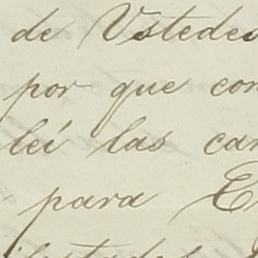 de Ustedes
por que con
leí las car
para E